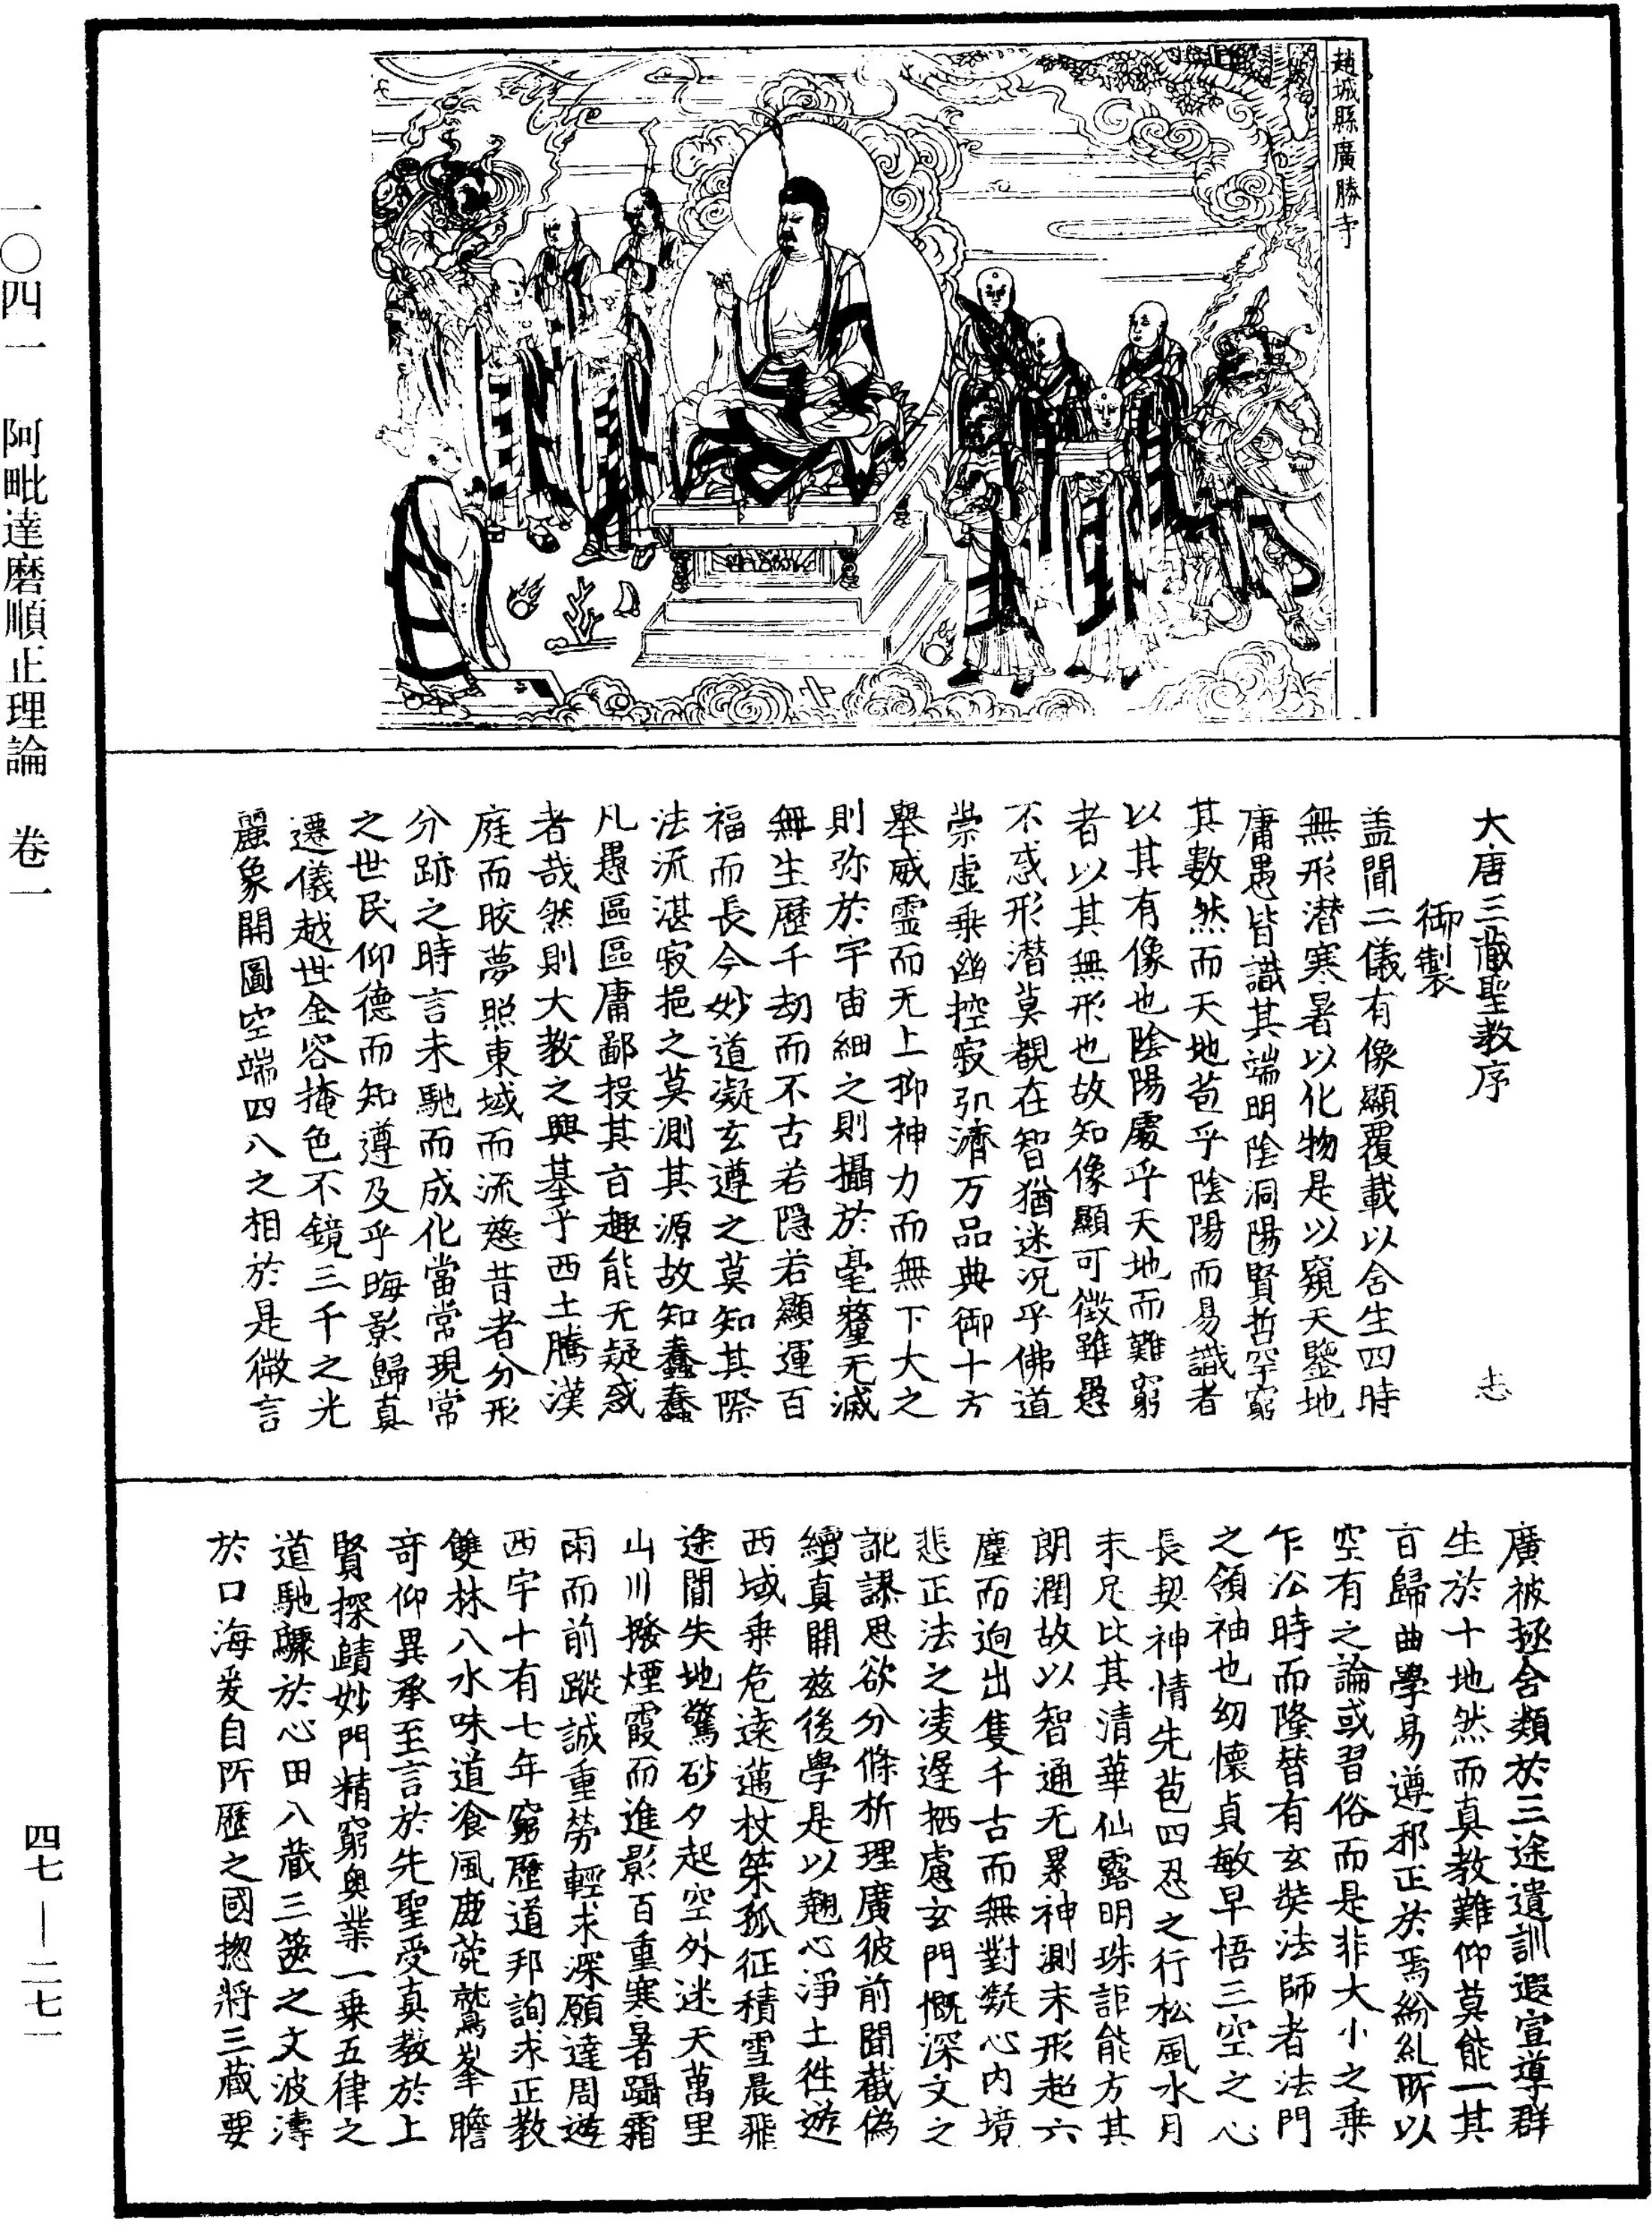 趙城縣廣勝寺
大唐三藏聖教序
御製
盖聞二儀有像顯覆載以含生四時
無形潜寒暑以化物是以窺天鑒地
庸愚皆識其端明陰洞陽賢哲罕窮
其數然而天地苞乎陰陽而易識者
以其有像也陰陽處乎天地而難窮
者以其無形也故知像顯可徵雖愚
不惑形潜莫覩在智猶迷况乎佛道
崇虛乗幽控寂弘濟万品典御十方
舉威霊而无上抑神力而無下大之
則弥於宇宙細之則攝於毫釐无滅
無生歷千劫而不古若隠若顯運百
福而長今妙道凝玄遵之莫知其際
法流湛寂挹之莫測其源故知蠢蠢
凡愚區區庸鄙投其旨趣能无疑惑
者哉然則大教之興基乎西土騰漢
庭而皎夢照東域而流慈昔者分形
分跡之時言未馳而成化當常現常
之世民仰德而知遵及乎晦影歸真
遷儀越世金容掩色不鏡三千之光
麗象開圖空端四八之相於是微言
廣被拯含類於三途遺訓遐宣導群
生於十地然而真教難仰莫能一其
旨歸曲學易遵邪正於焉紛糺所以
空有之論或習俗而是非大小之乗
乍㳂時而隆替有玄奘法師者法門
之領袖也幼懷貞敏早悟三空之心
長契神情先苞四忍之行松風水月
未足比其清華仙露明珠詎能方其
朗潤故以智通无累神測未形超六
塵而逈出隻千古而無對凝心内境
悲正法之凌遲栖慮玄門慨深文之
訛謬思欲分條析理廣彼前聞截偽
續真開茲後學是以翹心淨土徃遊
西域乗危遠邁杖策孤征積雪晨飛
途間失地驚砂夕起空外迷天萬里
山川撥煙霞而進影百重寒暑躡霜
雨而前蹤誠重勞輕求深願達周遊
西宇十有七年窮歷道邦詢求正教
雙林八水味道飡風鹿菀鷲峯瞻
奇仰異承至言於先聖受真教於上
賢探賾妙門精窮奥業一乗五律之
道馳驟於心田八藏三篋之文波濤
於口海爰自所歷之國揔將三藏要
一〇四一　阿毗達磨順正理論　卷一
四七—二七一